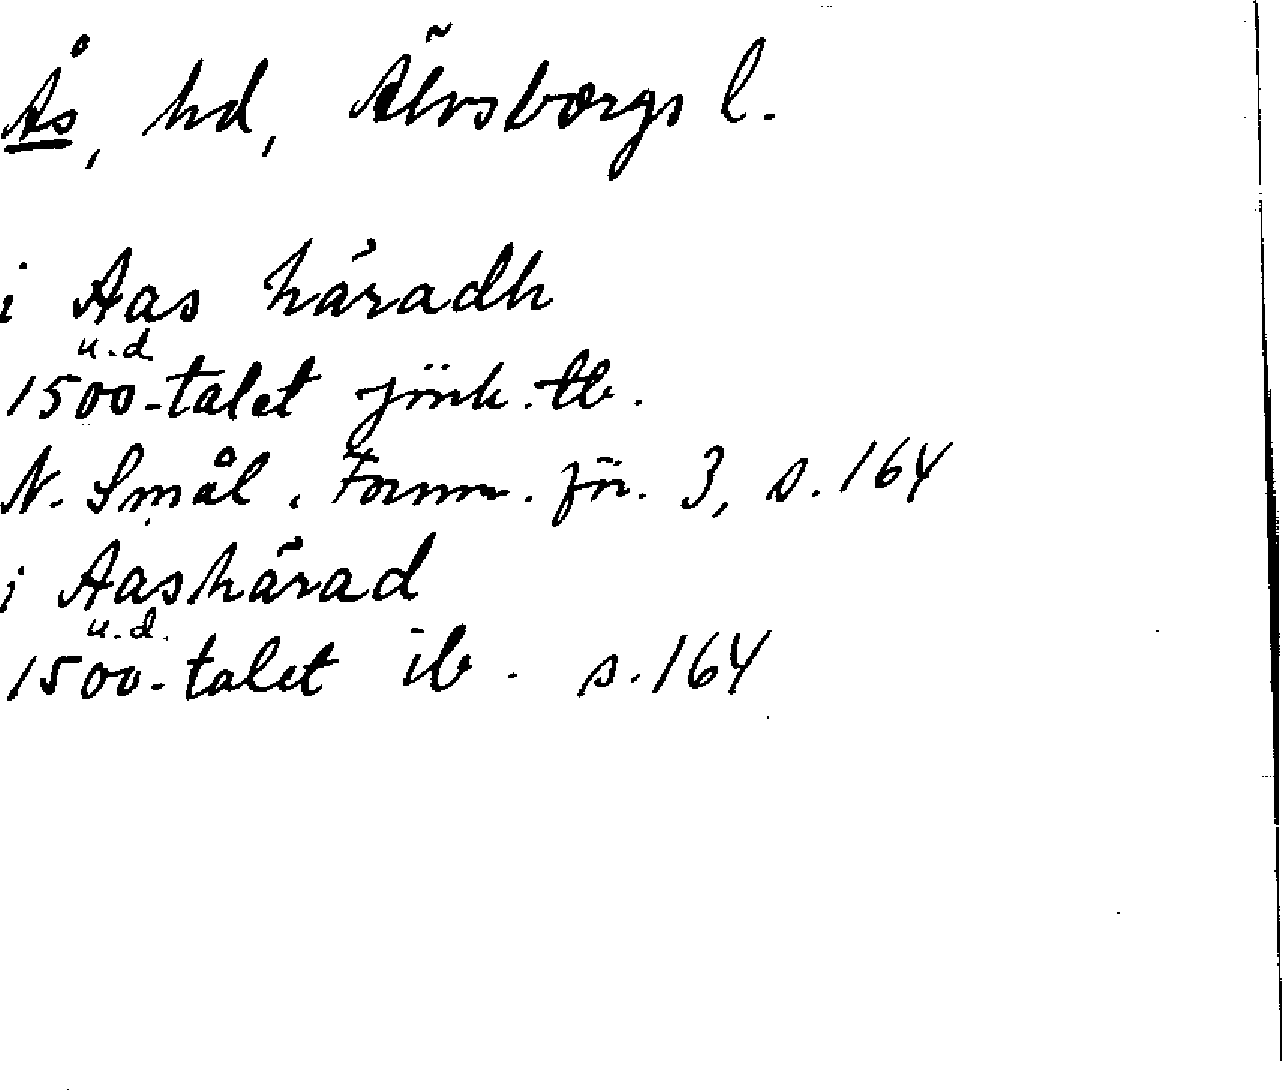 Ås, hd, Älvsborgs l.
i Aas häradh
u.d.
1500-talet jönk. tb.
N. Smål. Fornm. för. 3, s. 164
i Aashärad
u.d.
1500-talet ib. s. 164